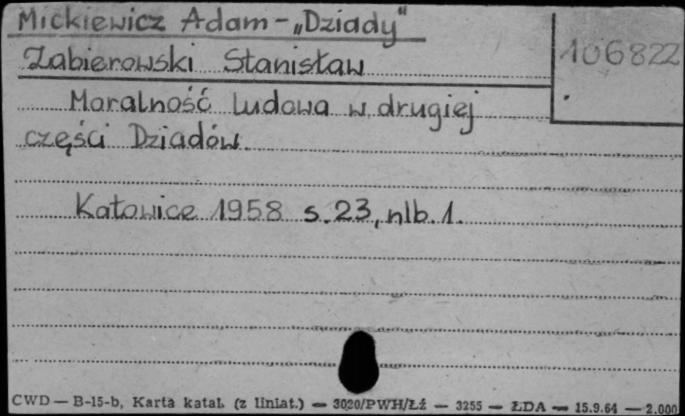 Mickiewicz Adam - „Dziady"
106822
Zabierowski Stanisław
Moralność ludowa w drugiej
części Dziadów.
Katowice 1958 s. 23, nlb. 1.
CWD — B-15-b, Karta katal. (z liniat.) — 3020/PWH/Łź — 3255 — ŁDA — 15.9.64 — 2.000